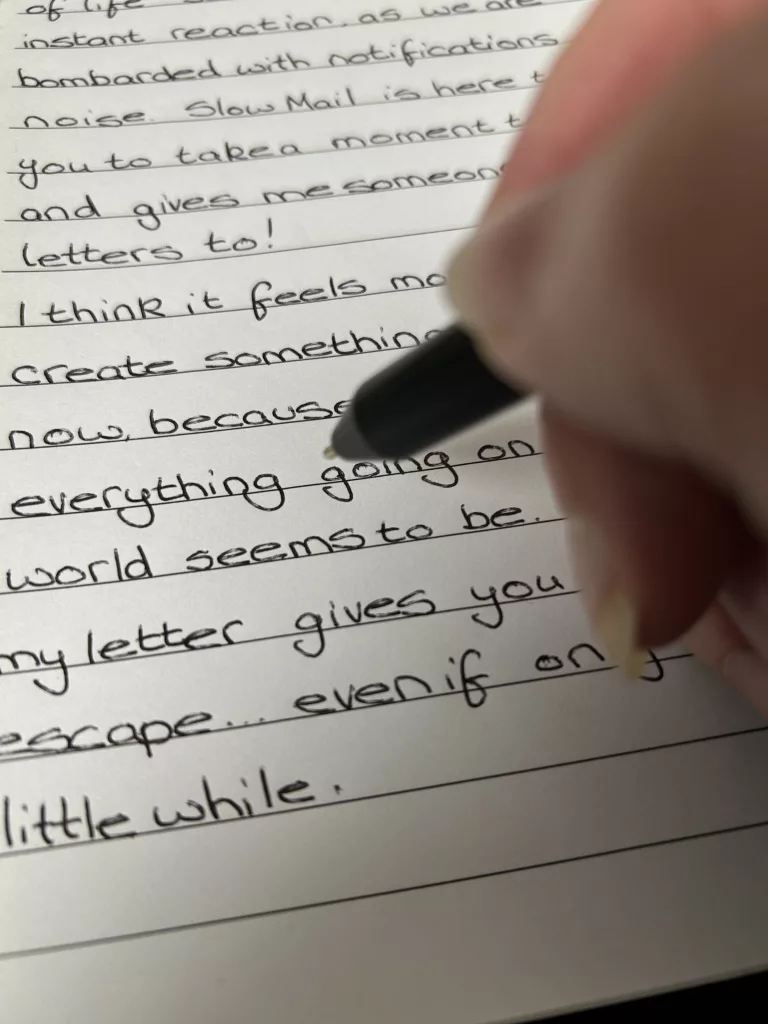 of life
instant reaction. as we are
bombarded with notifications
noise. Slow Mail is here
you to take a moment
and gives me
letters to!
I think it feels
create something
now, because
everything going on
world seems to be.
my letter gives you
escape... even if
little while.